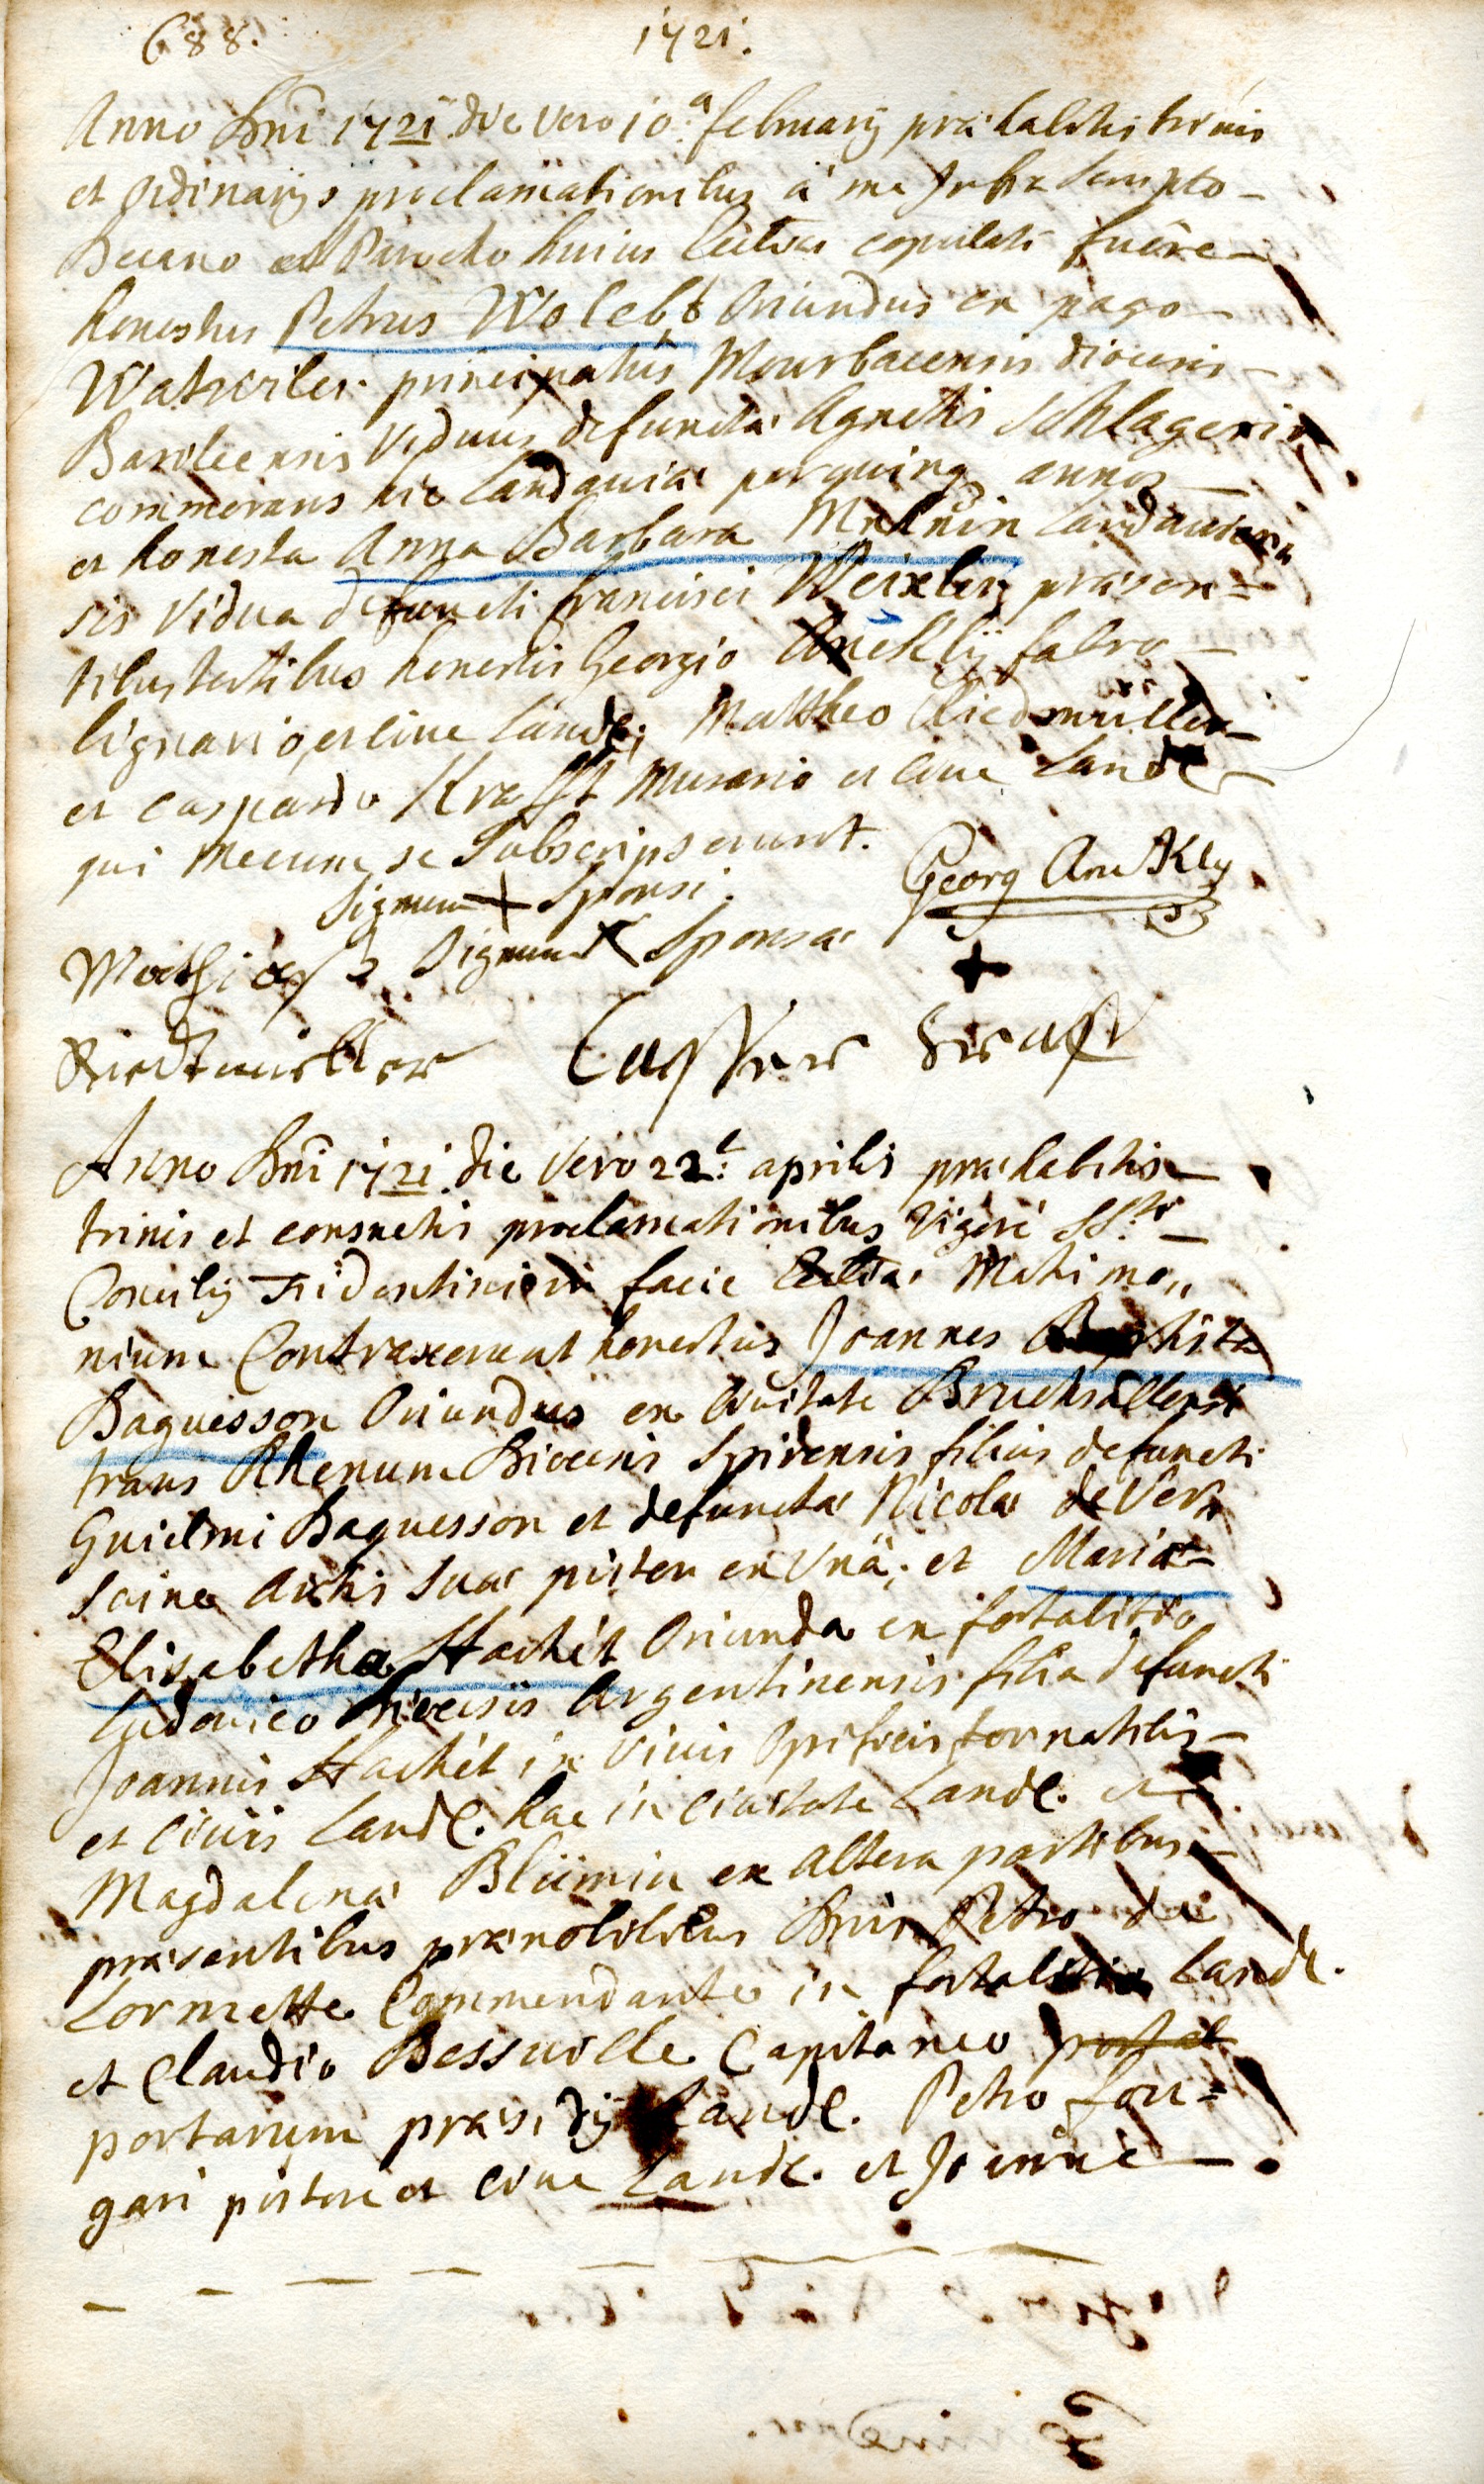 688. 1721.
Anno Dñi 1721. die vero 10.a februarij praehabitis trinis
et ordinarijs proclamationibus à me Infra scripto
Decano et Parocho huius Eccltiae copulati fuêre
honestus Petrus Wolebt Oriundus ex pago
Watweiler principatus Mourbacensis diocesis
Basileensis viduus defunctae Agnetis Schlagerin
commorans hic Landaviae per quinq annos
et honesta Anna Barbara Landavien
sis vidua defuncti francisci Weixler praesen=
tibus testibus honestis Georgio Aneklÿ fabro
lignario, et cive Landl; Mattheo Riedmüller
et Caspardo Krafft Murario et cive Landl
qui mecum se Subscripserunt.
Signum + Sponsi. Georg Aneklÿ
Mathias Signum X Sponsae +
Riedtmiller Casper Kraft
Anno Dñi 1721. die vero 22.t aprilis praehabitis
trinis et consuetis proclamationibus vigore SS.ti
Concilij Tridentini in facie Eccltiae Matrimo,,
nium Contraxerunt honestus Joannes Baptista
Baguesson Oriundus ex Civitate Bruchsallensi
trans Rhenum Diocesis Spirensis filius defuncti
Guielmi Baguesson et defunctae Nicolae de Ver
saine Artis suae pistor ex Unâ; et Maria
Elisabetha Hachét Oriunda ex fortalitio
Ludovico Diocesis Argentinensis filia defuncti
Joannis Hachét in vivis Opificis tornatilis
et civis Landl. hac in civitate Landl. et
Magdalenae Blümin ex altera partibus
praesentibus praenobilibus Dnis Petro de
Lormette Commendante in fortalitio Landl.
et Claudio Bessuielle Capitaneo portal
portarum praesidij Landl. Petro fou=
gari pistore et cive Landl. et Joanne